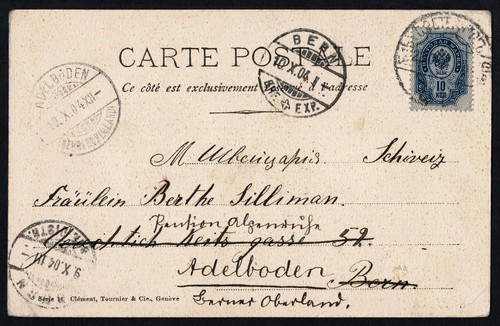 CARTE POSTALE
Ce côté est exclusivement réservé à l'adresse
BERN
10.X.04.
EXP.
ADELBODEN
10.X.04.XII-
10 КОП
М Швейцарія. Schweiz
Fräulein Berthe Silliman
Pension Alpenruhe
gasse 52.
Adelboden Bern.
Berner Oberland.
9.X.04.III
Série 11 Clément, Tournier & Cie., Genève